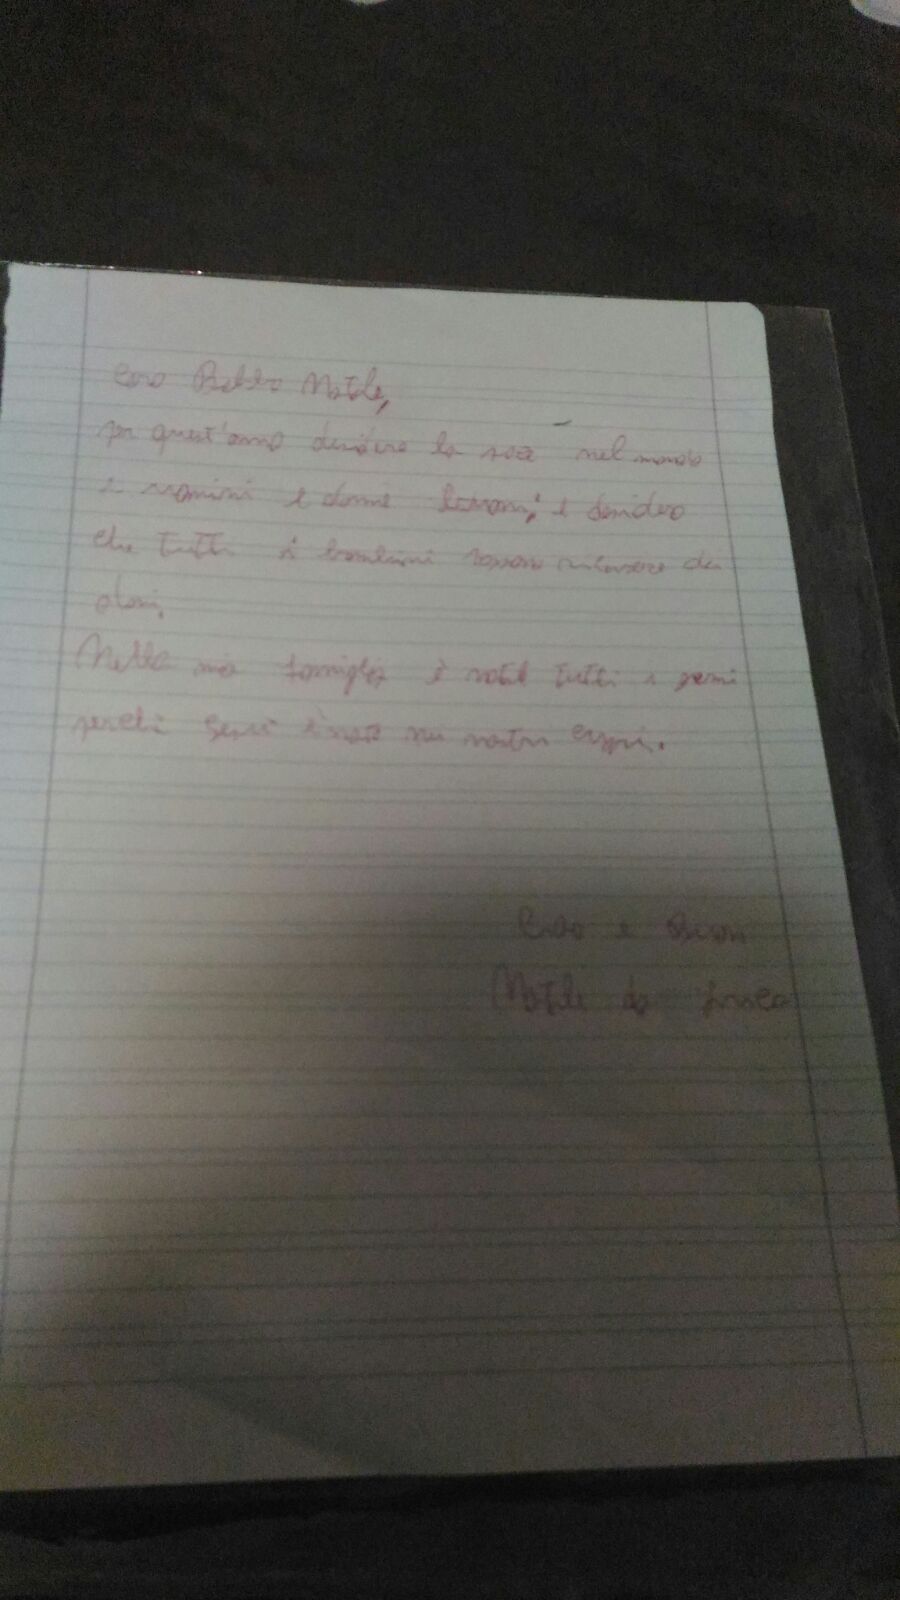 Caro Babbo Natale,
per quest'anno desidero la pace nel mondo
e uomini e donne buoni, e desidero
che tutti i bambini possano ricevere dei
doni.
Nella mia famiglia è natale tutti i giorni
perché Gesù è nato nei nostri cuori.
Ciao e Buon
Natale da